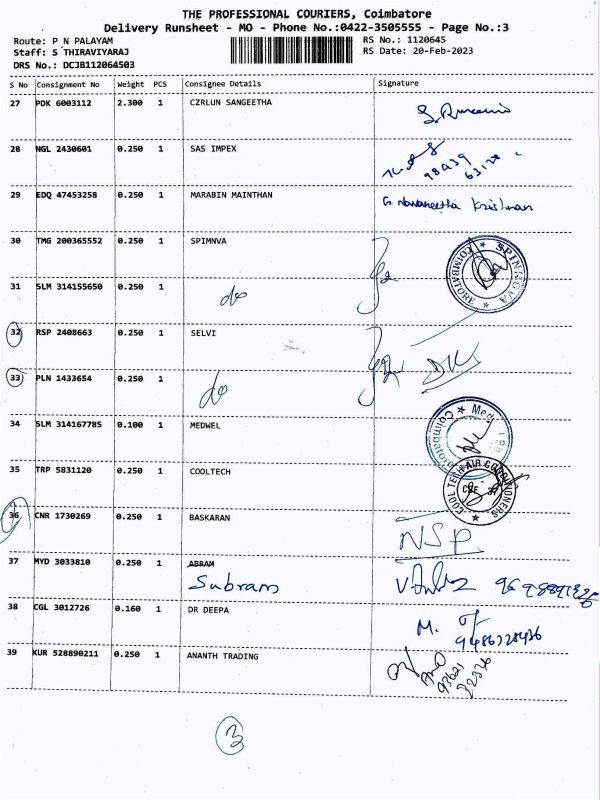 THE PROFESSIONAL COURIERS, Coimbatore
Delivery Runsheet - MO - Phone No.:0422-3505555 - Page No.:3
Route: P N PALAYAM RS No.: 1120645
Staff: S THIRAVIYARAJ RS Date: 20-Feb-2023
DRS No.: DCJB112064503
S No Consignment No Weight PCS Consignee Details Signature
27 PDK 6003112 2.300 1 CZRLUN SANGEETHA
28 NGL 2430601 0.250 1 SAS IMPEX
29 EDQ 47453258 0.250 1 MARABIN MAINTHAN G. Navaneetha Krishnan
30 TMG 200365552 0.250 1 SPIMNVA
SPINNOVA COIMBATORE
31 SLM 314155650 0.250 1 do
32 RSP 2408663 0.250 1 SELVI
33 PLN 1433654 0.250 1 do
34 SLM 314167785 0.100 1 MEDWEL
Med Coimbatore
35 TRP 5831120 0.250 1 COOLTECH
COOL TECH AIR CONDITIONERS CBE
36 CNR 1730269 0.250 1 BASKARAN NSP
37 MYD 3033810 0.250 1 ABRAM
Subram
38 CGL 3012726 0.160 1 DR DEEPA M.
39 KUR 528890211 0.250 1 ANANTH TRADING
3